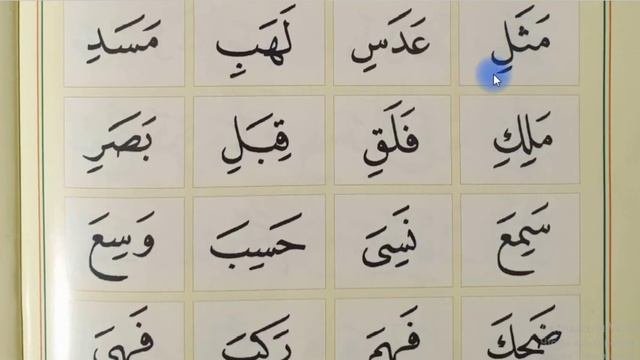 مَثَلِ عَدَسِ لَهَبِ مَسَدِ
مَلِكِ فَلَقِ قِبَلِ بَصَرِ
سَمِعَ نَسِىَ حَسِبَ وَسِعَ
ضَحِكَ فَهِمَ رَكِبَ فَهِىَ